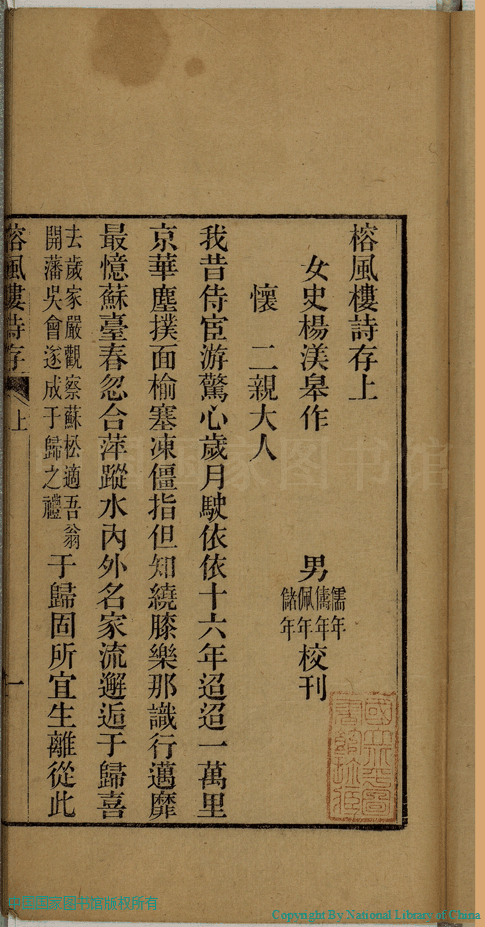 榕風樓詩存上
女史楊渼皋作
男儒年儁年佩年儲年校刊
懷 二親大人
我昔侍宦游驚心歲月駛依依十六年迢迢一萬里
京華塵撲面榆塞凍僵指但知繞膝樂那識行邁靡
最憶蘇臺春忽合萍蹤水內外名家流邂逅于歸喜
去歲家嚴觀察蘇松適吾翁
開藩吳會遂成于歸之禮
于歸固所宜生離從此
榕風樓詩存
上
一
中国国家图书馆
中国国家图书馆版权所有
Copyright By National Library of China